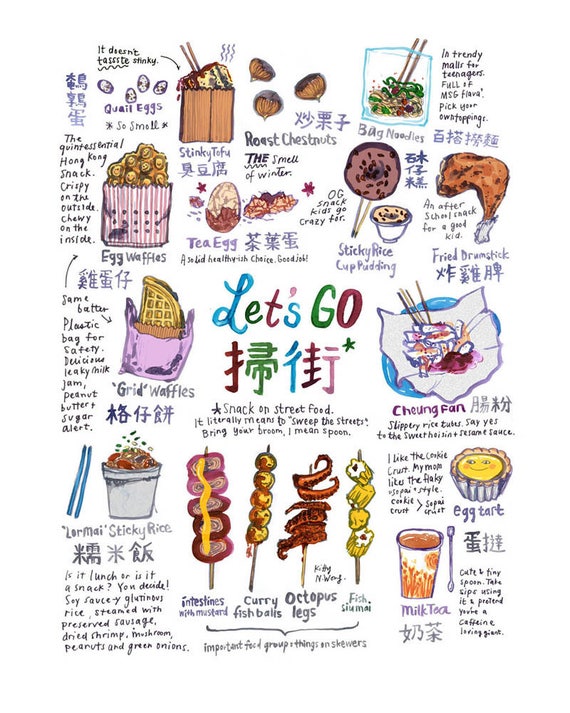 It doesn't
tasste stinky.
鵪鶉蛋
Quail Eggs
* So Small *
Stinky Tofu
臭豆腐
炒栗子
Roast Chestnuts
THE Smell
of winter.
Bag Noodles
百搭撈麵
In trendy
malls for
teenagers.
FULL OF
MSG flava'.
Pick your
own toppings.
The
quintessential
Hong Kong
Snack.
Crispy
on the
outside.
Chewy
on the
inside.
Egg Waffles
雞蛋仔
Tea Egg 茶葉蛋
A solid healthy-ish choice. Good job!
OG
snack
kids go
crazy for.
Sticky Rice
Cup Pudding
砵仔糕
An after
School snack
for a good
kid.
Fried Drumstick
炸雞髀
Same
batter
Plastic
bag for
Safety.
Delicious
leaky milk
jam,
peanut
butter +
sugar
alert.
"Grid" Waffles
格仔餅
Let's GO
掃街*
* Snack on street food.
It literally means to "sweep the streets".
Bring your broom, I mean spoon.
Cheung Fan 腸粉
Slippery rice tubes. Say yes
to the sweet hoisin + sesame sauce.
"Lormai" Sticky Rice
糯米飯
Is it lunch or is it
a snack? You decide!
Soy saucey glutinous
rice, steamed with
preserved sausage,
dried shrimp, mushroom,
peanuts and green onions.
intestines
with mustard
Curry
fish balls
Octopus
legs
Fish
siumai
Kitty
N. Wong.
important food group: things on skewers
I like the cookie
Crust. My mom
likes the flaky
"sopai" style.
Cookie > Sopai
crust crust
egg tart
蛋撻
Milk Tea
奶茶
Cute & tiny
spoon. Take
sips using
it & pretend
you're a
caffeine
loving giant.